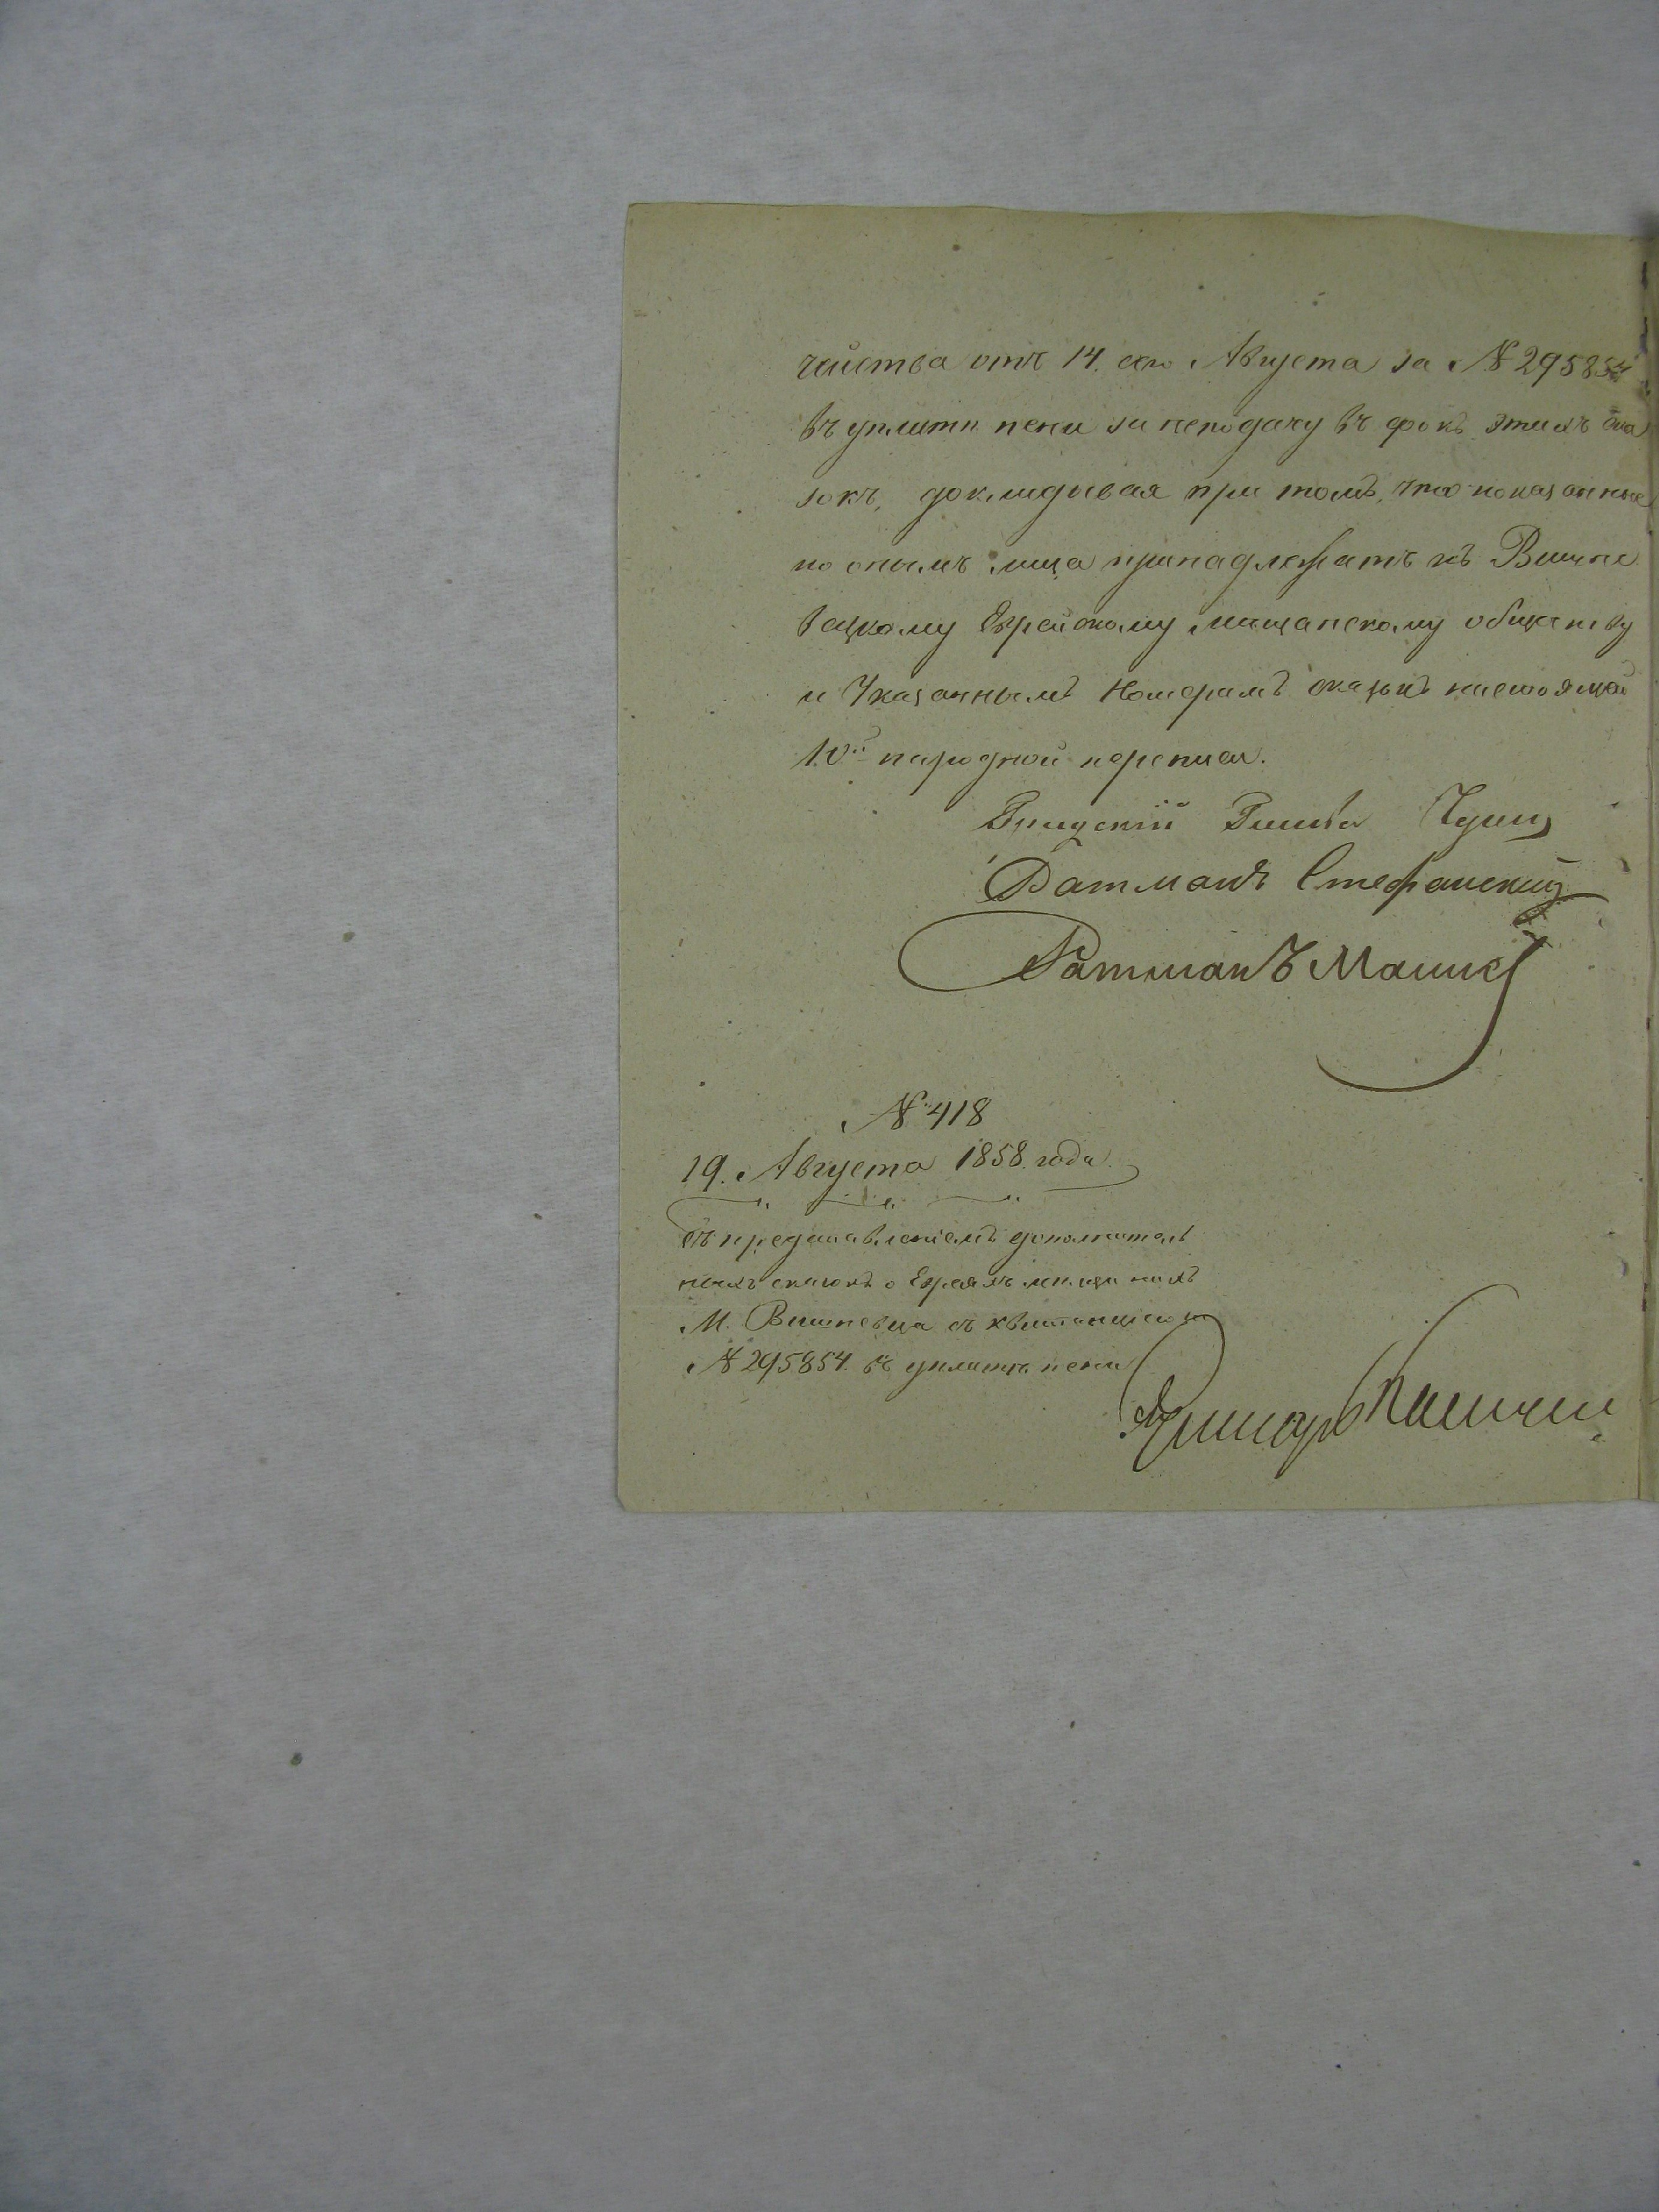 чейства отъ 14. сего Августа за № 295854
въ уплатѣ пени за неподачу въ срокъ этихъ ска
зокъ, докладывая при томъ, что показанные
по онымъ лица принадлежатъ къ Вишне
вецкому Еврейскому мѣщанскому обществу
и Указаннымъ Номерамъ сказокъ настоящей
10й народной переписи.
Градскій Глава
Ратманъ Стефанский
Ратманъ
№ 418
19. Августа 1858. года.
Съ представленіемъ дополнитель
ныхъ сказокъ о Евреяхъ мещанахъ
М. Вишневца съ квитанціею за
№ 295854. въ уплатѣ пени